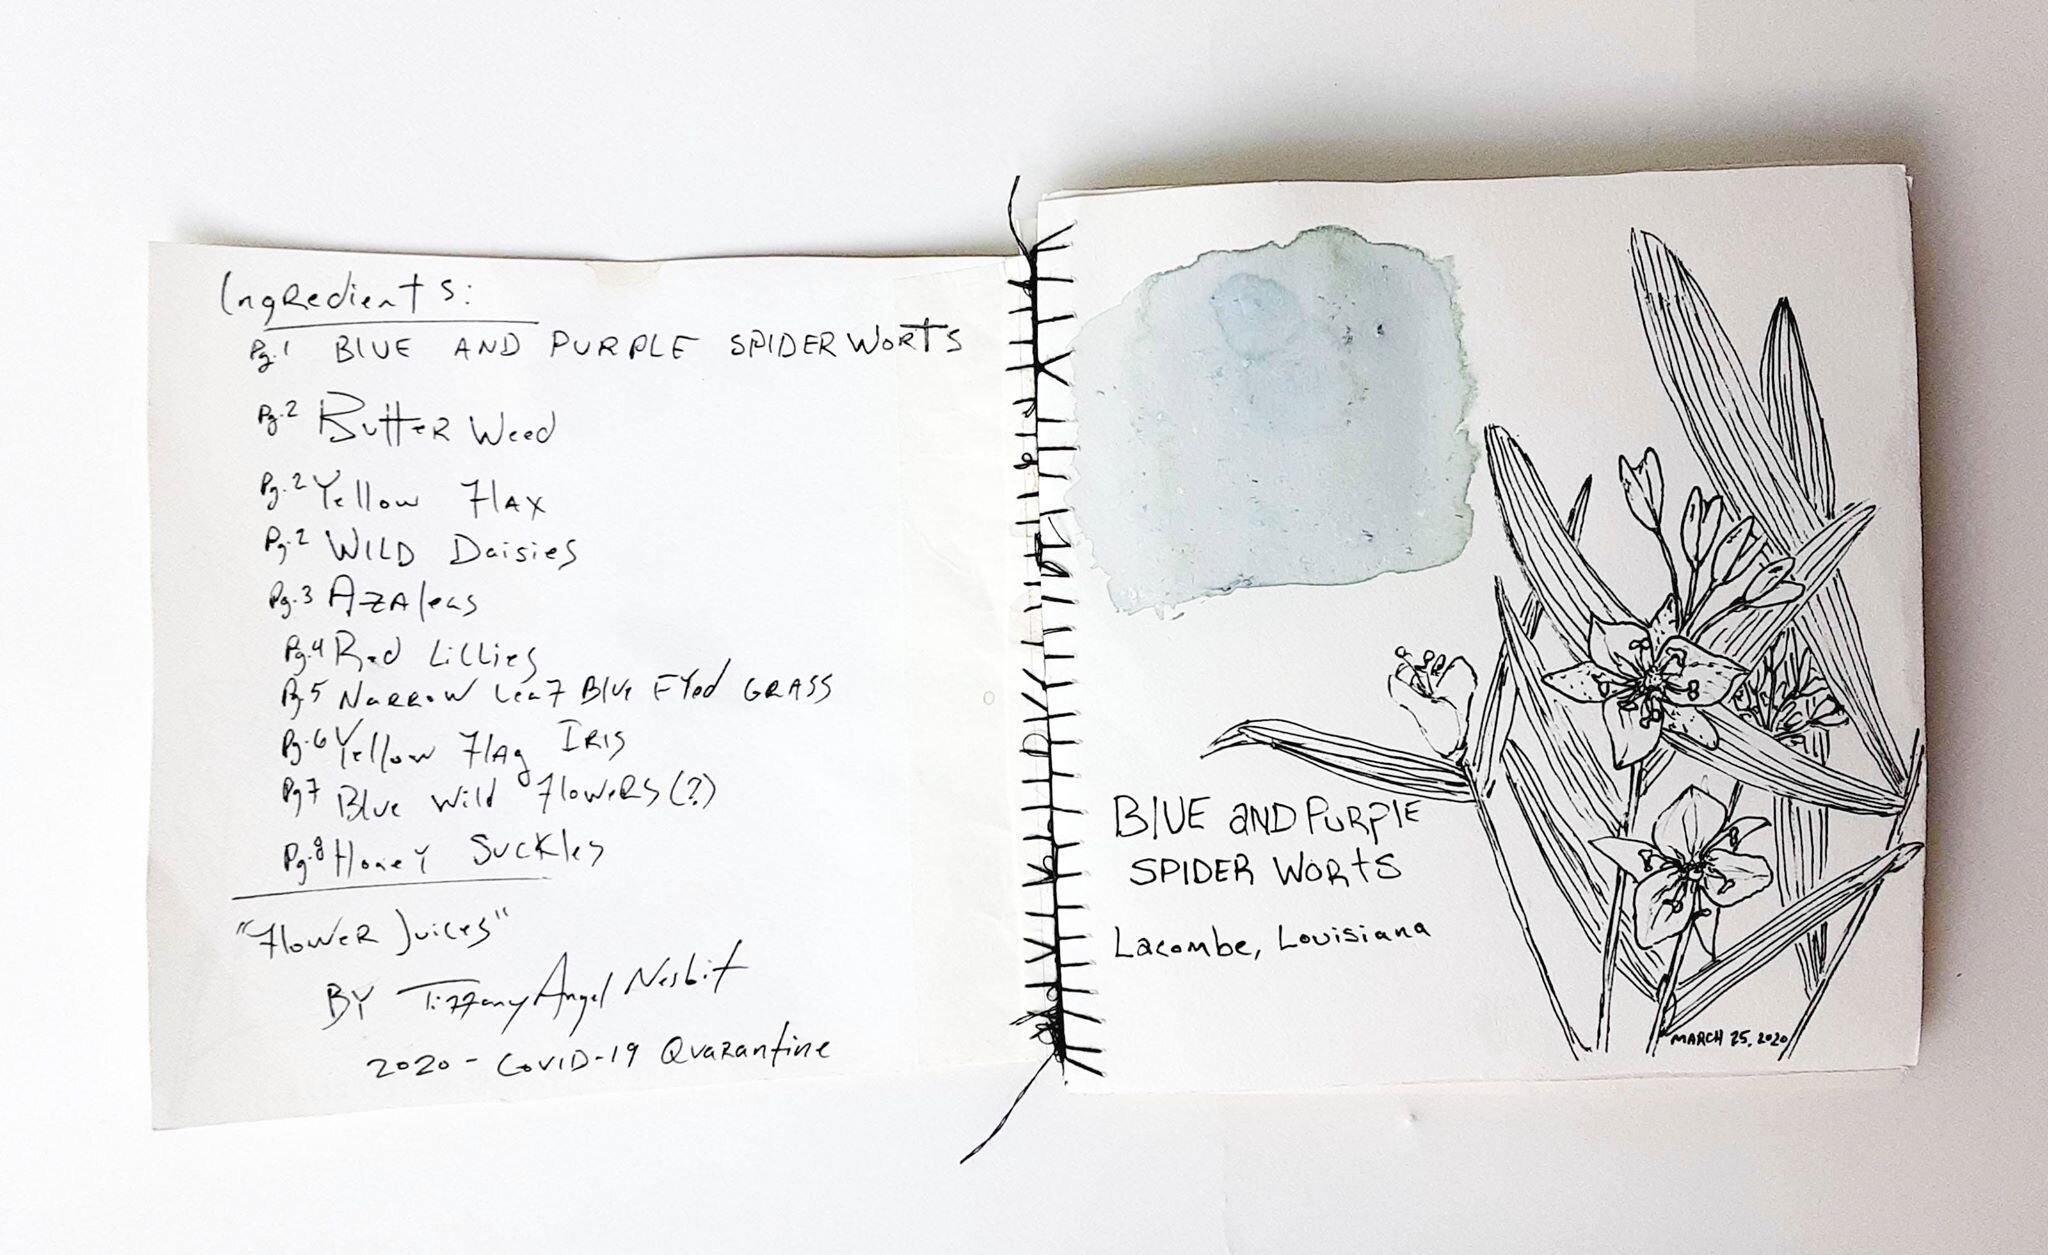 Ingredients:
Pg.1 BLUE AND PURPLE SPIDER WORTS
Pg.2 Butter Weed
Pg.2 Yellow Flax
Pg.2 WILD Daisies
Pg.3 Azaleas
Pg.4 Red Lillies
Pg5 Narrow Leaf Blue Eyed GRASS
Pg.6 Yellow Flag IRIS
Pg7 Blue Wild Flowers (?)
Pg.8 Honey Suckles
"Flower Juices"
BY Tiffany Angel Nesbit
2020 - COVID-19 Quarantine
BLUE AND PURPLE
SPIDER WORTS
Lacombe, Louisiana
MARCH 25, 2020